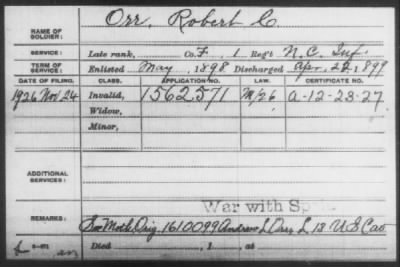 NAME OF SOLDIER: Orr, Robert C.
SERVICE: Late rank, Co. F, 1 Reg't N.C. Inf.
TERM OF SERVICE: Enlisted May, 1898 Discharged Apr. 22, 1899
DATE OF FILING. CLASS. APPLICATION NO. LAW. CERTIFICATE NO.
1926 Nov 24 Invalid, 1562571 M/26 A-12-23-27
Widow,
Minor,
ADDITIONAL SERVICES:
War with
REMARKS: See Moth. Orig. 1610099 Andrew L Orr, L 13 U S Cav
Died , 1 , at